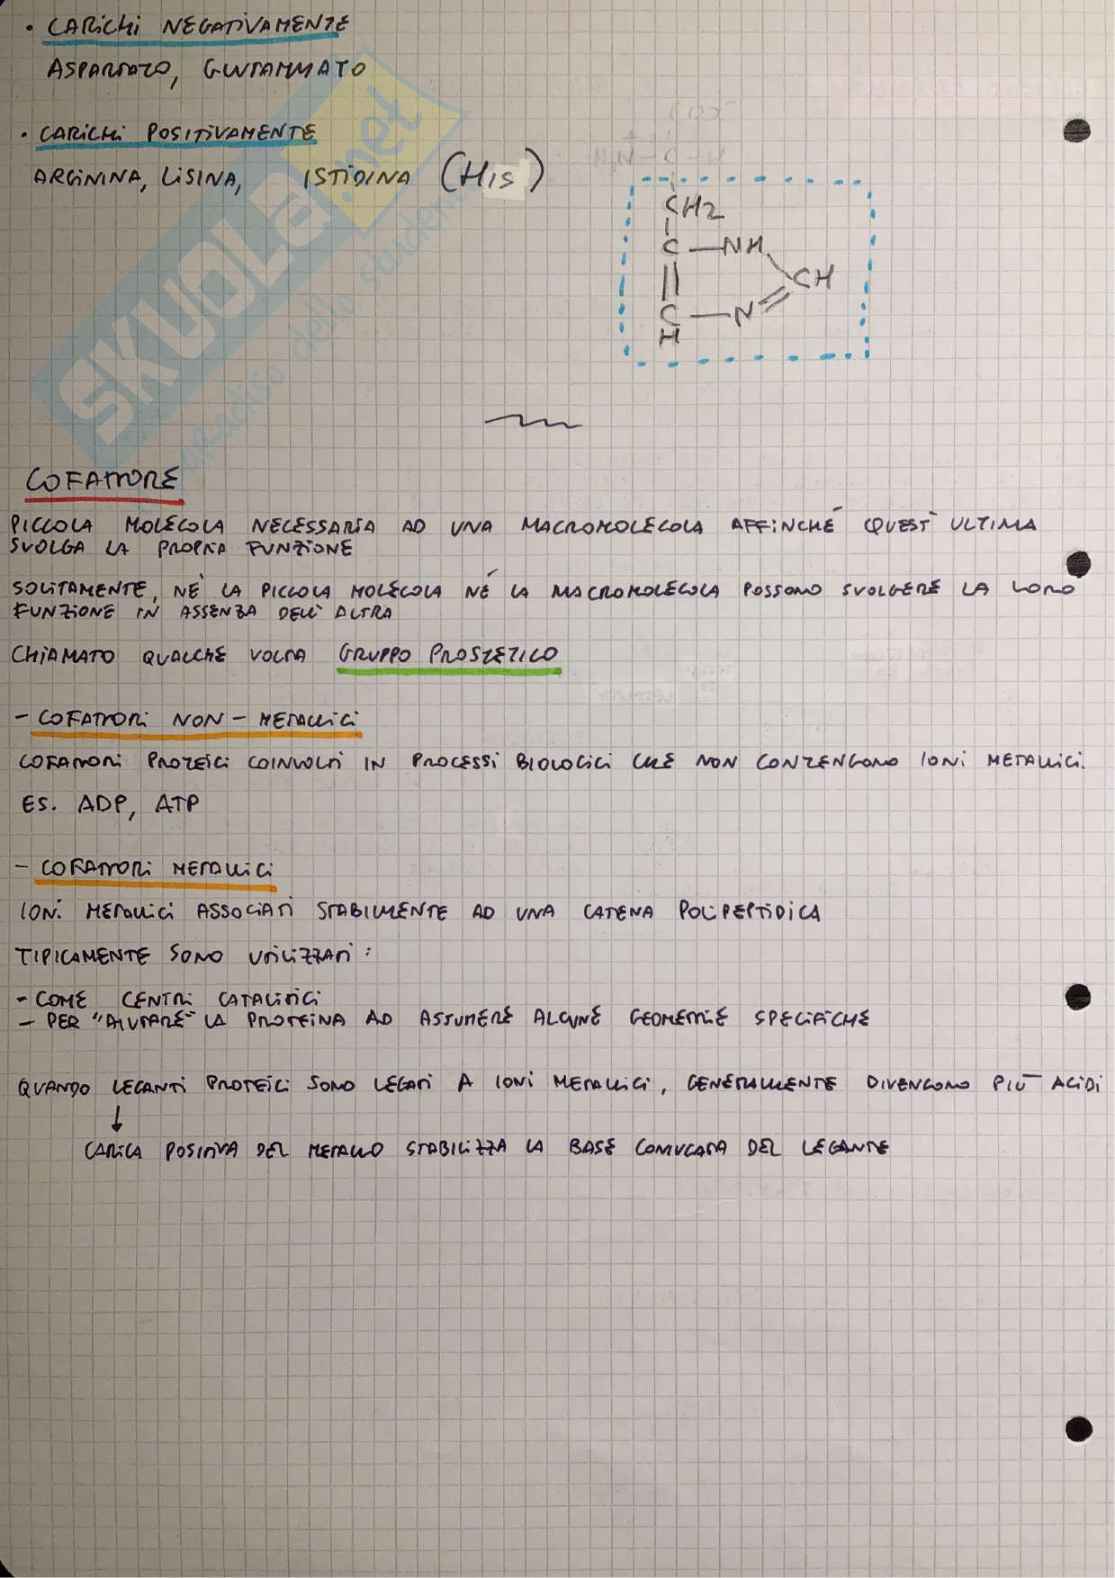 • CARICHI NEGATIVAMENTE
ASPARTATO, GLUTAMMATO
• CARICHI POSITIVAMENTE
ARGININA, LISINA, ISTIDINA (His)
CH2
C — NH
CH
C — N
H
COFATTORE
PICCOLA MOLECOLA NECESSARIA AD UNA MACROMOLECOLA AFFINCHÉ QUEST'ULTIMA
SVOLGA LA PROPRIA FUNZIONE
SOLITAMENTE, NÉ LA PICCOLA MOLECOLA NÉ LA MACROMOLECOLA POSSONO SVOLGERE LA LORO
FUNZIONE IN ASSENZA DELL'ALTRA
CHIAMATO QUALCHE VOLTA GRUPPO PROSTETICO
- COFATTORI NON-METALLICI
COFATTORI PROTEICI COINVOLTI IN PROCESSI BIOLOGICI CHE NON CONTENGONO IONI METALLICI.
ES. ADP, ATP
- COFATTORI METALLICI
IONI METALLICI ASSOCIATI STABILMENTE AD UNA CATENA POLIPEPTIDICA
TIPICAMENTE SONO UTILIZZATI:
- COME CENTRI CATALITICI
- PER "AIUTARE" LA PROTEINA AD ASSUMERE ALCUNE GEOMETRIE SPECIFICHE
QUANDO LEGANTI PROTEICI SONO LEGATI A IONI METALLICI, GENERALMENTE DIVENGONO PIÙ ACIDI
↓
CARICA POSITIVA DEL METALLO STABILIZZA LA BASE CONIUGATA DEL LEGANTE
SKUOLA.net